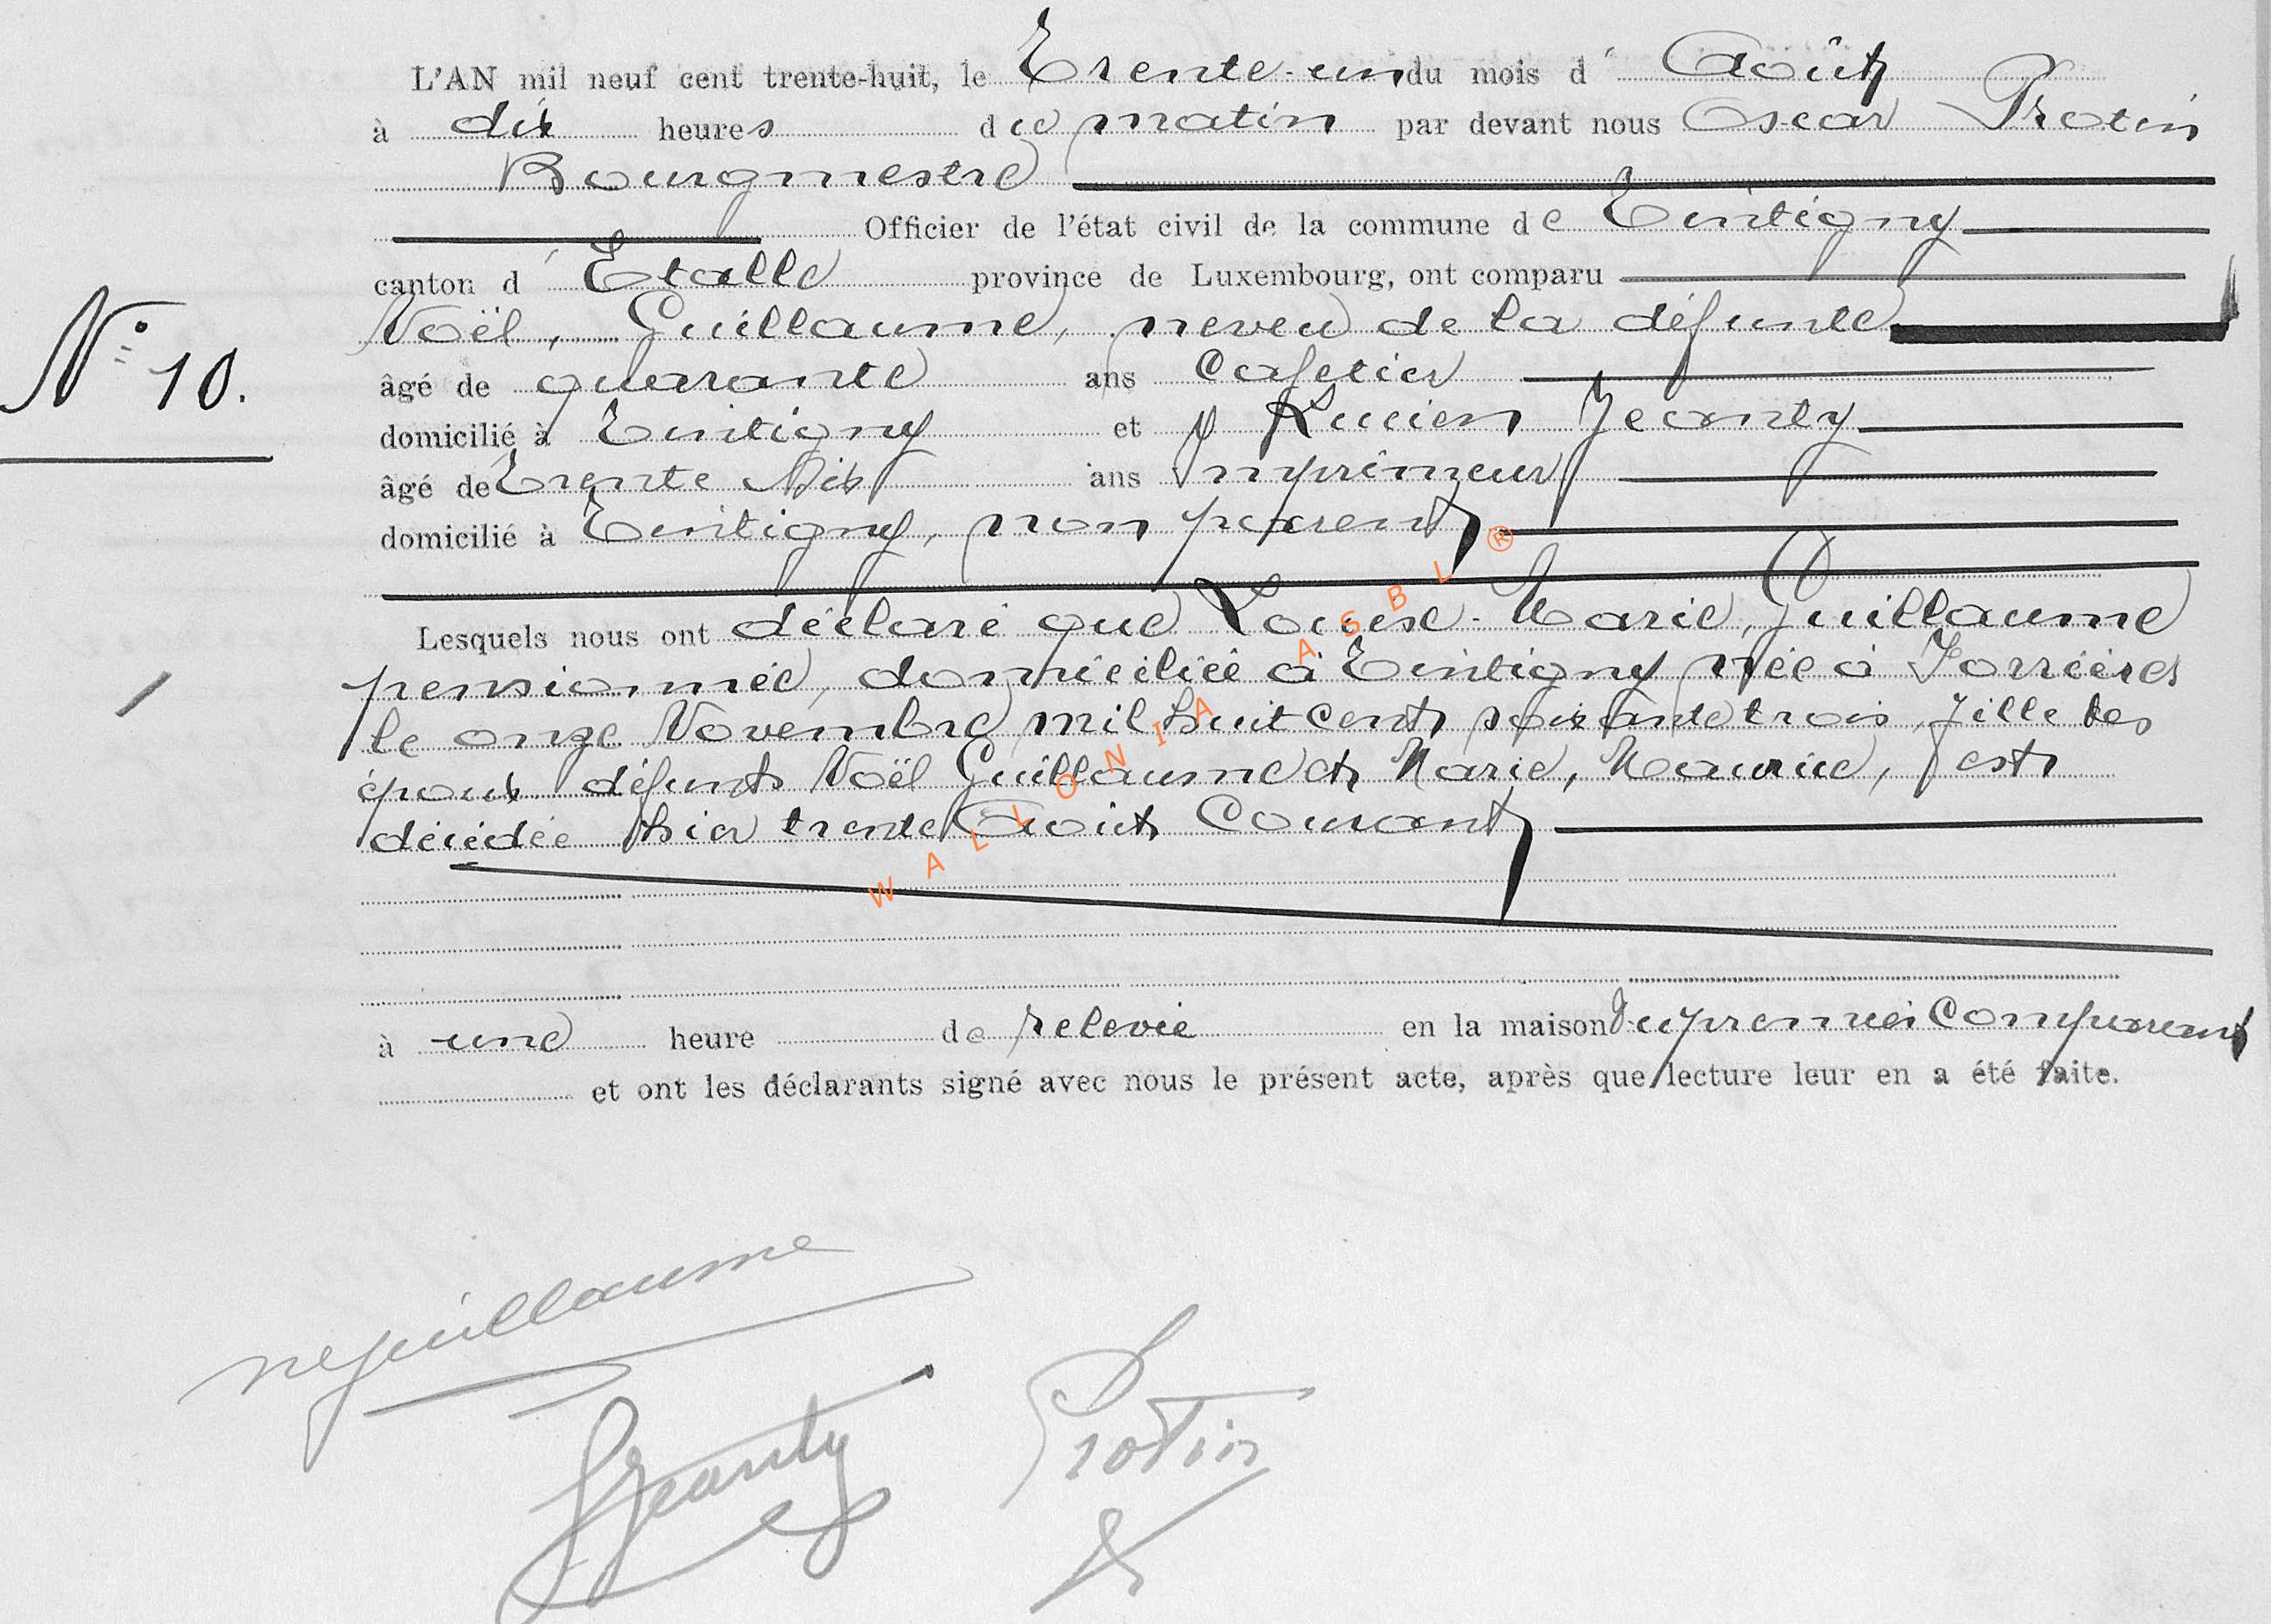 L'AN mil neuf cent trente-huit, le Trente-un du mois d' Août
à dix heures du matin par devant nous Oscar Protin
Bourgmestre
Officier de l'état civil de la commune de Tintigny
canton d' Etalle province de Luxembourg, ont comparu
Noël, Guillaume, neveu de la défunte
N° 10.
âgé de quarante ans Cafetier
domicilié à Tintigny et Lucien Jeanty
âgé de Trente six ans Imprimeur
domicilié à Tintigny, non parent
Lesquels nous ont déclaré que Louise-Marie, Guillaume
pensionnée, domiciliée à Tintigny née à Forrières
le onze Novembre mil huit cent soixante trois, fille des
époux défunts Noël Guillaume et Marie, Maurice, est
décédée hier trente Août Courant
à une heure de relevée en la maison du premier Comparant
et ont les déclarants signé avec nous le présent acte, après que lecture leur en a été faite.
WALLONIA ASBL ®
nguillaume
LJeanty
Protin